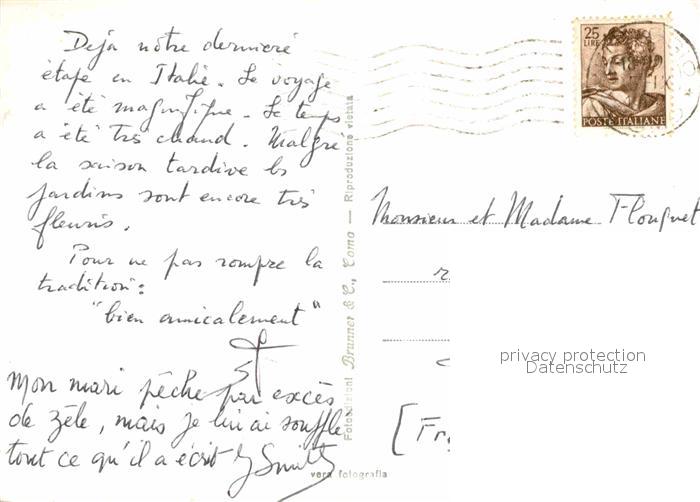 Deja nôtre dernière
étape en Italie. Le voyage
a été magnifique. Le temps
a été très chaud. Malgré
la saison tardive les
jardins sont encore très
fleuris.
Pour ne pas rompre la
tradition:
"bien amicalement"
Mon mari pêche par excès
de zèle, mais je lui ai soufflé
tout ce qu'il a écrit
Fotoedizioni Brunner & C., Como — Riproduzione vietata
vera fotografia
25
LIRE
POSTE ITALIANE
Monsieur et Madame Flouquet
r
privacy protection
Datenschutz
[Fr